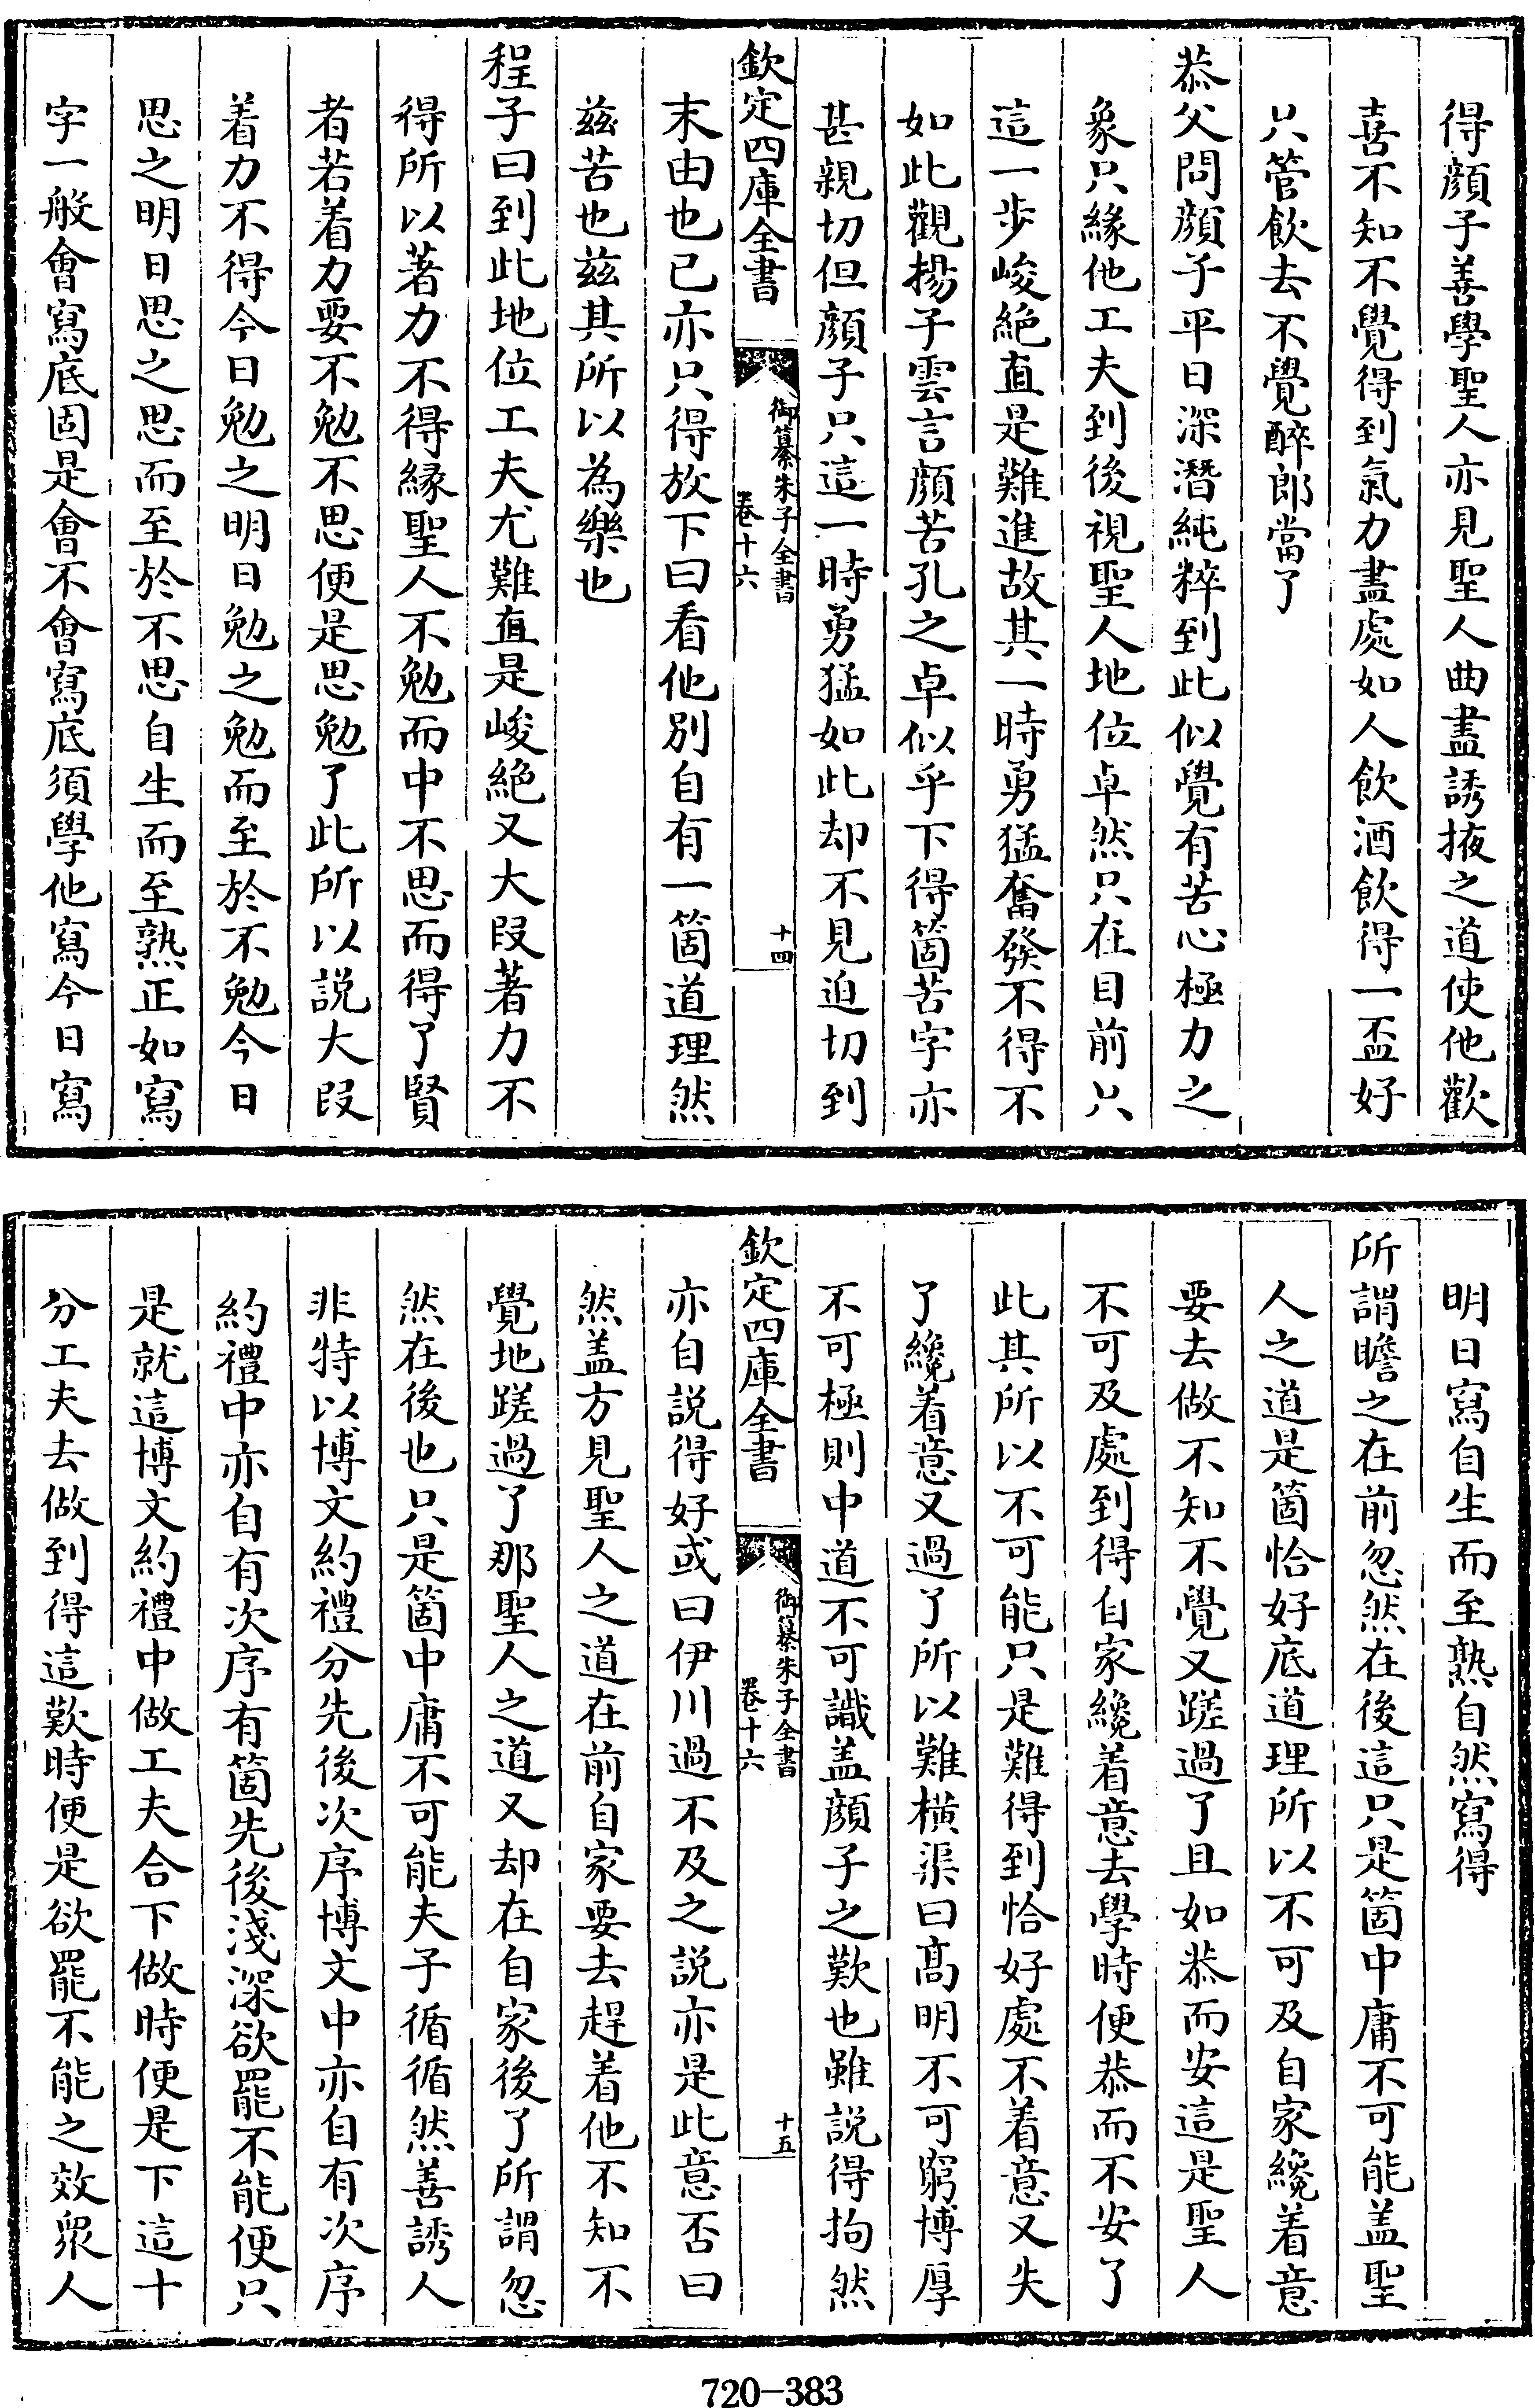 得顔子善學聖人亦見聖人曲盡誘掖之道使他歡
喜不知不覺得到氣力盡處如人飲酒飲得一盃好
只管飲去不覺醉郎當了
恭父問顔子平日深潛純粹到此似覺有苦心極力之
象只緣他工夫到後視聖人地位卓然只在目前只
這一步峻絶直是難進故其一時勇猛奮發不得不
如此觀揚子雲言顔苦孔之卓似乎下得箇苦字亦
甚親切但顔子只這一時勇猛如此却不見迫切到
欽定四庫全書
御纂朱子全書
卷十六
十四
末由也已亦只得放下曰看他別自有一箇道理然
兹苦也兹其所以為樂也
程子曰到此地位工夫尤難直是峻絶又大段著力不
得所以著力不得縁聖人不勉而中不思而得了賢
者若着力要不勉不思便是思勉了此所以説大段
着力不得今日勉之明日勉之勉而至於不勉今日
思之明日思之思而至於不思自生而至熟正如寫
字一般會寫底固是會不會寫底須學他寫今日寫
明日寫自生而至熟自然寫得
所謂瞻之在前忽然在後這只是箇中庸不可能盖聖
人之道是箇恰好底道理所以不可及自家纔着意
要去做不知不覺又蹉過了且如恭而安這是聖人
不可及處到得自家纔着意去學時便恭而不安了
此其所以不可能只是難得到恰好處不着意又失
了纔着意又過了所以難横渠曰髙明不可窮博厚
不可極則中道不可識盖顔子之歎也雖説得拘然
欽定四庫全書
御纂朱子全書
卷十六
十五
亦自説得好或曰伊川過不及之説亦是此意否曰
然盖方見聖人之道在前自家要去趕着他不知不
覺地蹉過了那聖人之道又却在自家後了所謂忽
然在後也只是箇中庸不可能夫子循循然善誘人
非特以博文約禮分先後次序博文中亦自有次序
約禮中亦自有次序有箇先後淺深欲罷不能便只
是就這博文約禮中做工夫合下做時便是下這十
分工夫去做到得這歎時便是欲罷不能之效衆人
720-383